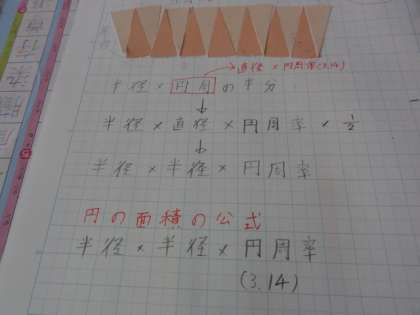 直径×円周率(3.14)
半径×円周の半分
半径×直径×円周率×1/2
半径×半径×円周率
円の面積の公式
半径×半径×円周率
(3.14)